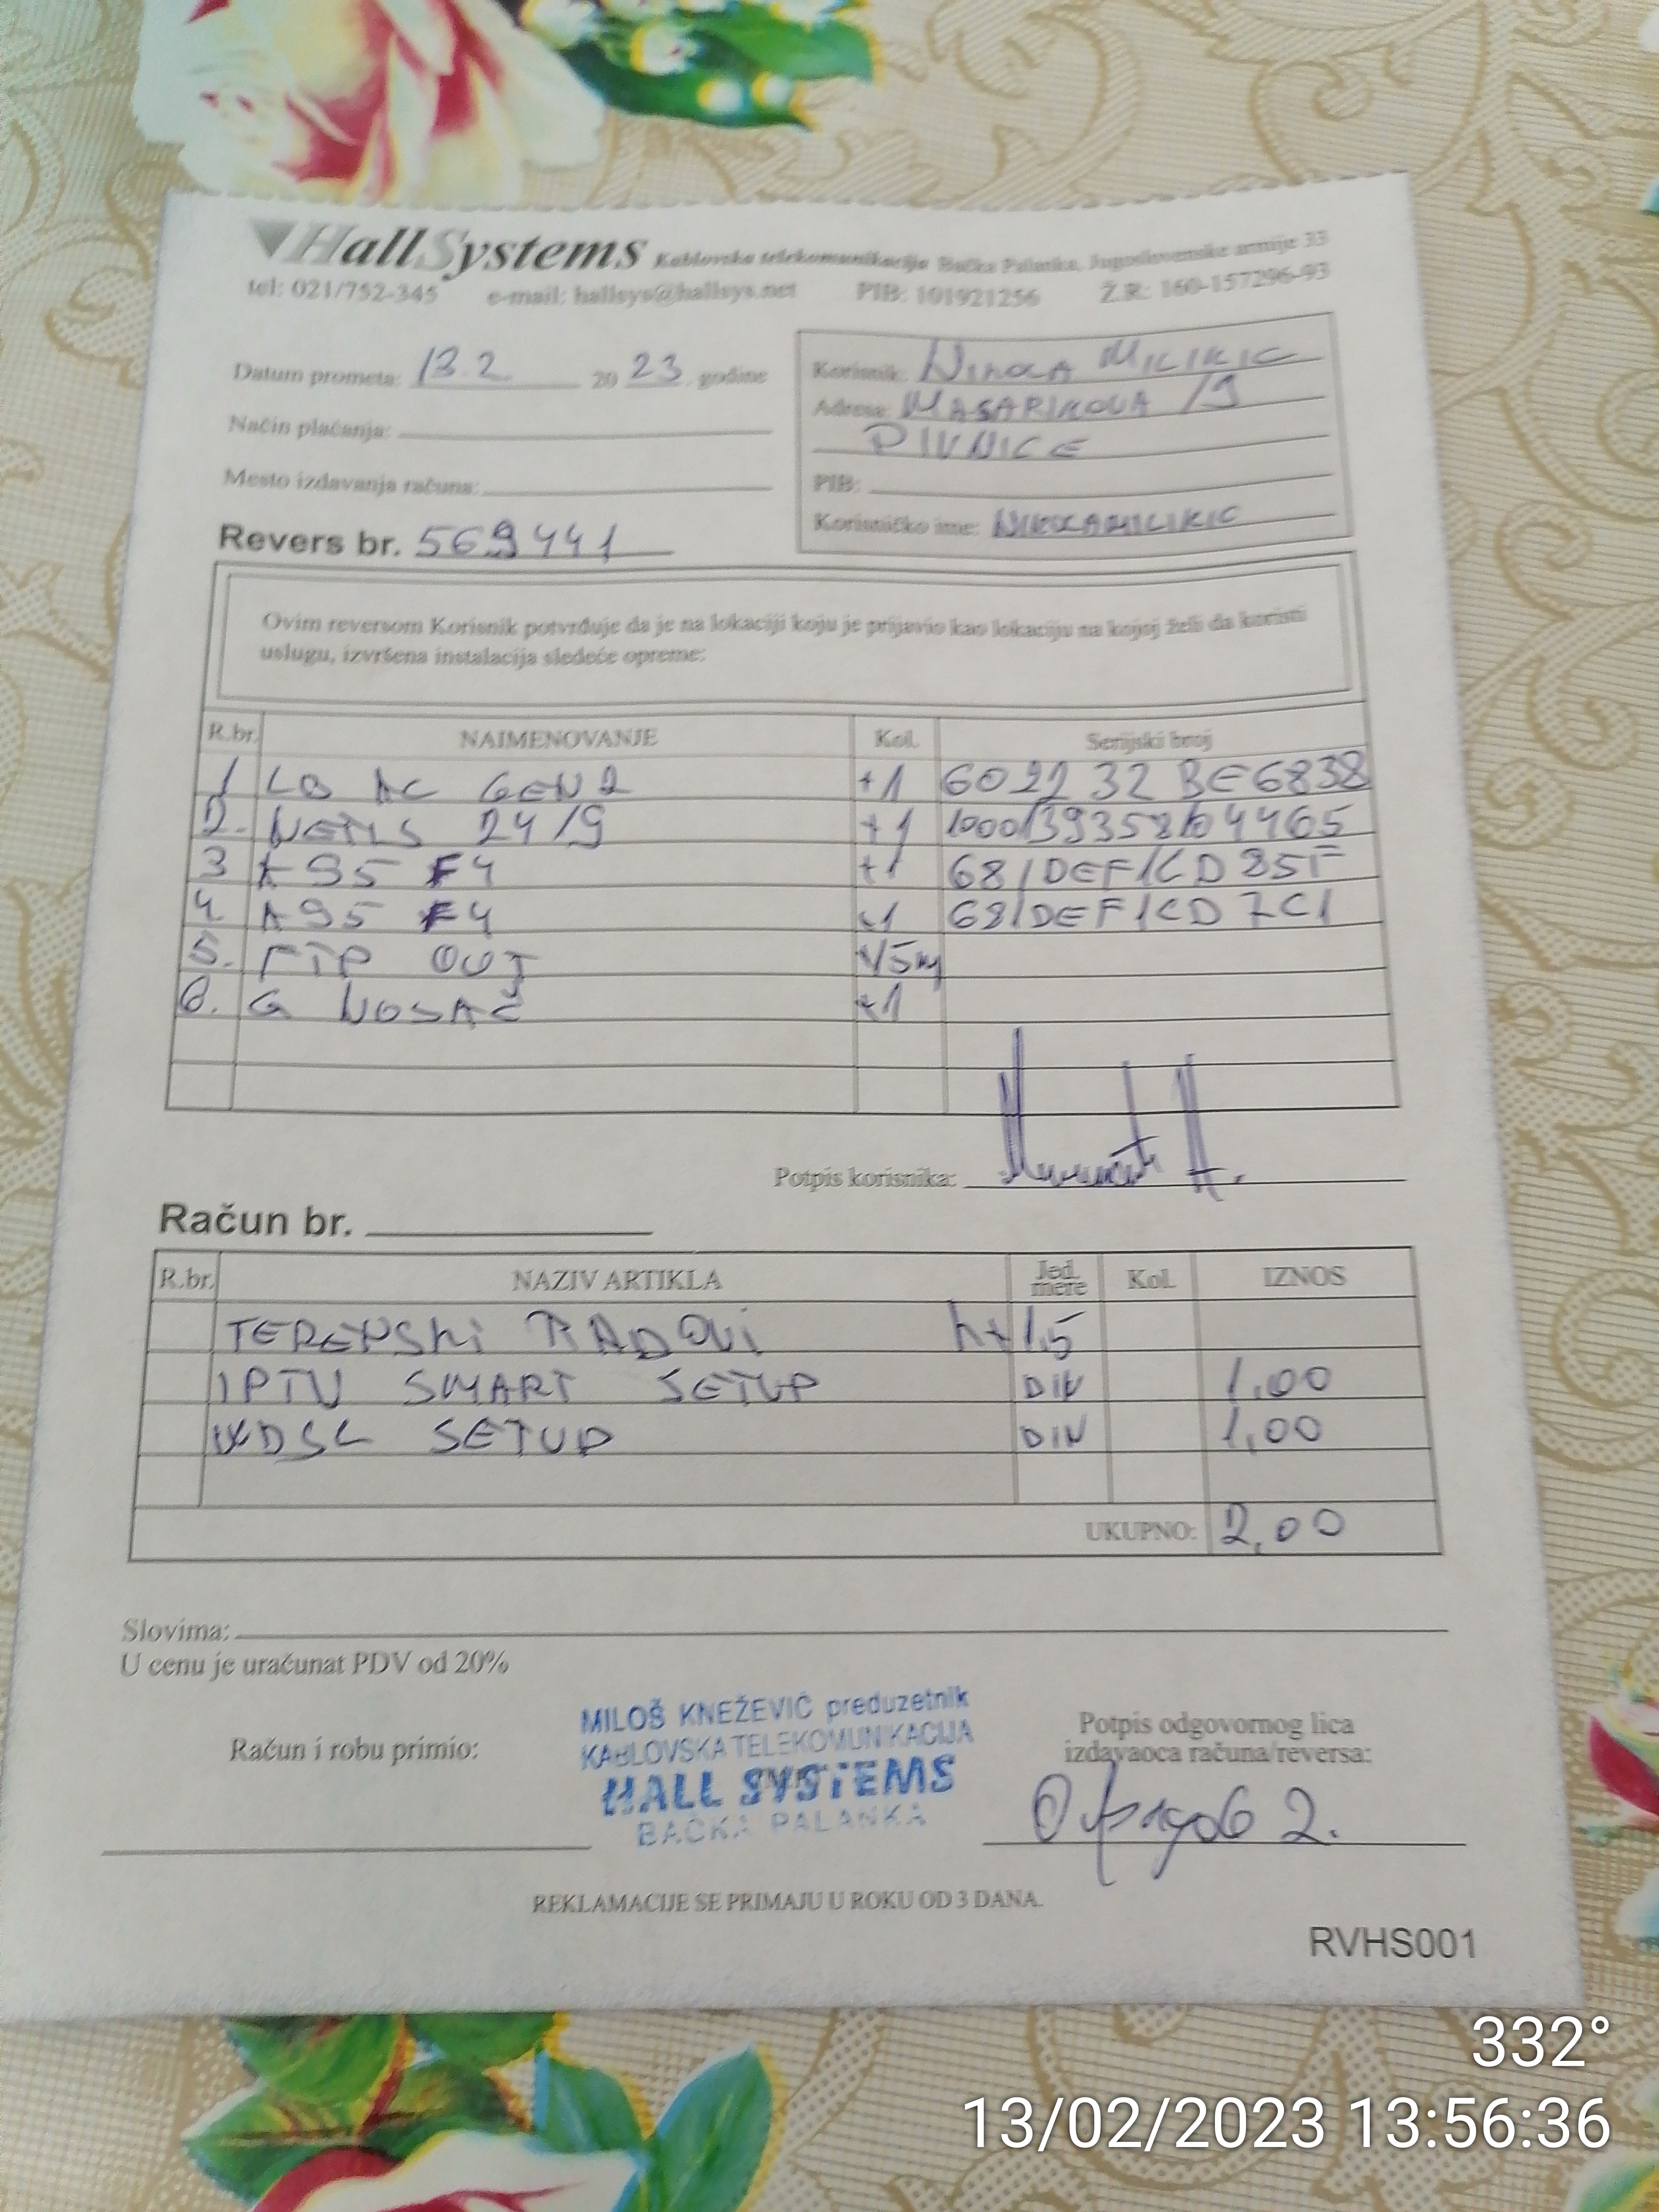 HallSystems Kablovska telekomunikacija Bačka Palanka, Jugoslovenske armije 33
tel: 021/752-345 e-mail: hallsys@hallsys.net PIB: 101921256 Ž.R: 160-157296-93
Datum prometa: 13.2 20 23. godine
Način plaćanja:
Mesto izdavanja računa:
Revers br. 569441
Korisnik: NIKOLA MILIKIC
Adresa: MASARIKOVA 19
PIVNICE
PIB:
Korisničko ime: NIKOLAMILIKIC
Ovim reversom Korisnik potvrđuje da je na lokaciji koju je prijavio kao lokaciju na kojoj želi da koristi
uslugu, izvršena instalacija sledeće opreme:
R.br. NAIMENOVANJE Kol. Serijski broj
1 LB AC GEN2 +1 6022 32 BE6838
2. NETIS 24/9 +1
3 A95 F4 +1 681DEF1CD85F
4. A95 F4 +1 681DEF1CD7C1
5. FTP OUT +15m
6. G NOSAČ +1
Potpis korisnika:
Račun br.
R.br. NAZIV ARTIKLA Jed. mere Kol. IZNOS
TERENSKI RADOVI h+1,5
IPTV SMART SETUP DIN 1,00
WDSL SETUP DIN 1,00
UKUPNO: 2,00
Slovima:
U cenu je uračunat PDV od 20%
Račun i robu primio:
MILOŠ KNEŽEVIĆ preduzetnik
KABLOVSKA TELEKOMUNIKACIJA
HALL SYSTEMS
BAČKA PALANKA
Potpis odgovornog lica
izdavaoca računa/reversa:
REKLAMACIJE SE PRIMAJU U ROKU OD 3 DANA.
RVHS001
332°
13/02/2023 13:56:36